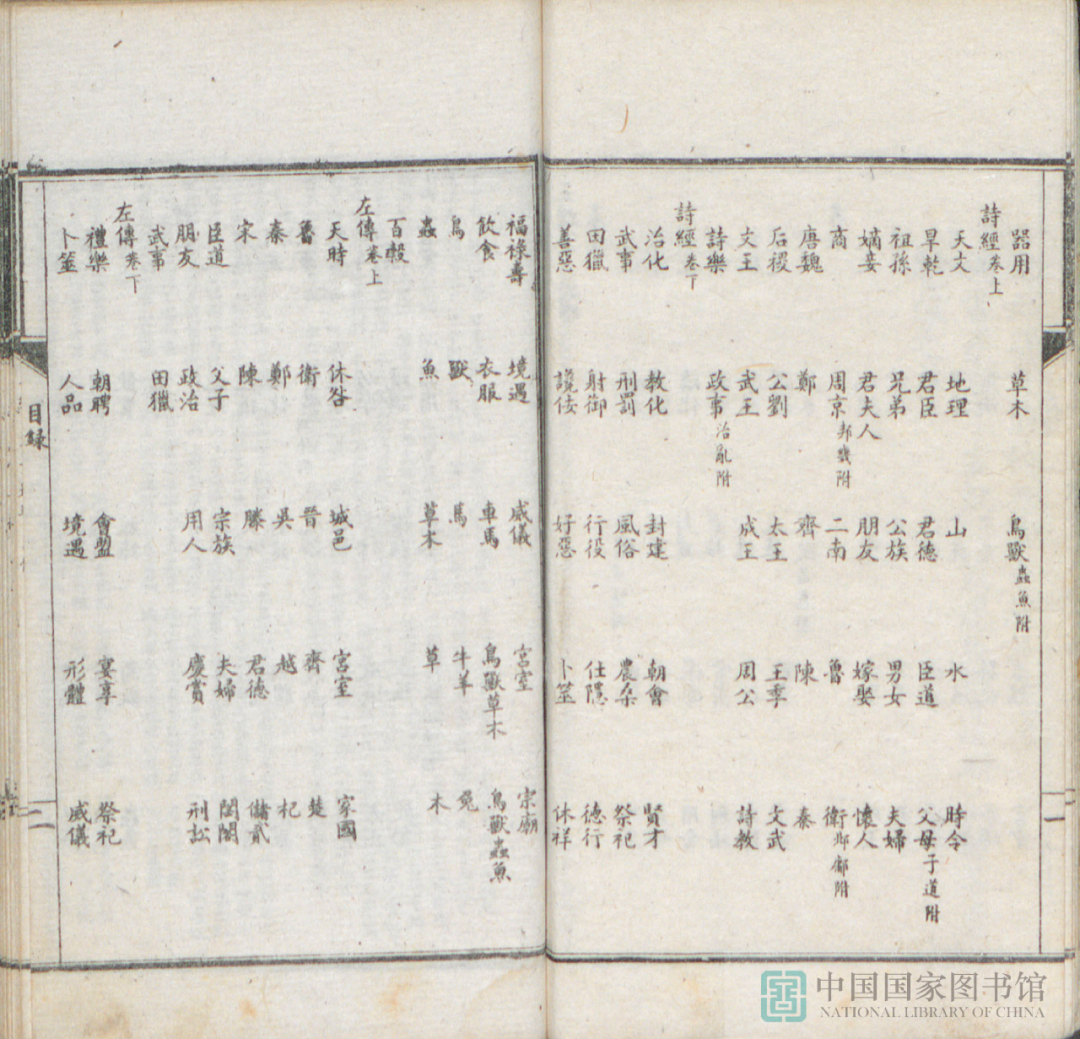 器用 草木 鳥獸蟲魚附
詩經卷上
天文 地理 山 水 時令
旱乾 君臣 君德 臣道 父母子道附
祖孫 兄弟 公族 男女 夫婦
嫡妾 君夫人 朋友 嫁娶 懷人
商 周京邦畿附 二南 魯 衛邶鄘附
唐魏 鄭 齊 陳 秦
后稷 公劉 太王 王季 文武
文王 武王 成王 周公 詩教
詩樂 政事治亂附
詩經卷下
治化 教化 封建 朝會 賢才
武事 刑罰 風俗 農桑 祭祀
田獵 射御 行役 仕隱 德行
善惡 讒佞 好惡 卜筮 休祥
福祿壽 境遇 威儀 宮室 宗廟
飲食 衣服 車馬 鳥獸草木 鳥獸蟲魚
鳥 獸 馬 牛羊 兔
蟲 魚 草木 草 木
百穀
左傳卷上
天時 休咎 城邑 宮室 家國
魯 衛 晉 齊 楚
秦 鄭 吳 越 杞
宋 陳 滕 君德 儲貳
臣道 父子 宗族 夫婦 閨閫
朋友 政治 用人 慶賞 刑訟
武事 田獵
左傳卷下
禮樂 朝聘 會盟 宴享 祭祀
卜筮 人品 境遇 形體 威儀
目錄
一
二
中国国家图书馆
NATIONAL LIBRARY OF CHINA